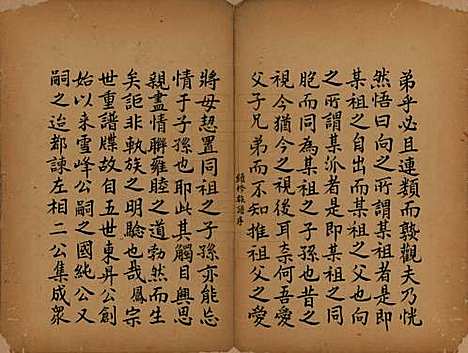 弟乎必且連類而孰觀夫乃恍
然悟曰向之所謂某祖者是即
某祖之父也向之所謂某祖之
之所謂某派者是即某祖之同
胞而同為某祖之子孫也昔之
視今猶今之視後耳柰何吾愛
父子兄弟而不知推祖父之愛
續修族譜序
將毋恝置同祖之子孫亦能忘
情于子孫也耶此其觸目興思
親盡情聯雍睦之道勃然而生
矣詎非軌族之明驗也哉鳳宗
世重譜牒故自五世東昇公創
始以來雪峰公嗣之國純公又
嗣之迨都諫左相二公集成衆